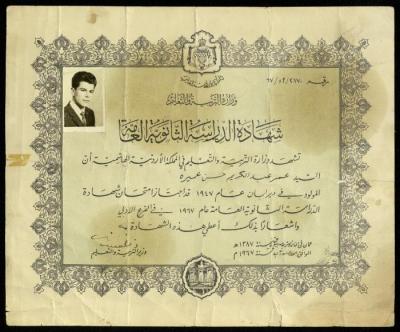 رقم ٦٧/٥٢/٢٦٧٠
وزارة التربية والتعليم
شهادة الدراسة الثانوية العامة
تشهد وزارة التربية والتعليم في المملكة الأردنية الهاشمية أن
السيد عمر عبد الكريم حسن عميرة
المولود في دير ابان عام ١٩٤٧ قد اجتاز امتحان شهادة
الدراسة الثانوية العامة عام ١٩٦٧ في الفرع الأدبي
واشعارًا بذلك أعطي هذه الشهادة
عمان في سنة ١٣٨٧ هـ
الموافق سنة ١٩٦٧ م
وزير التربية والتعليم